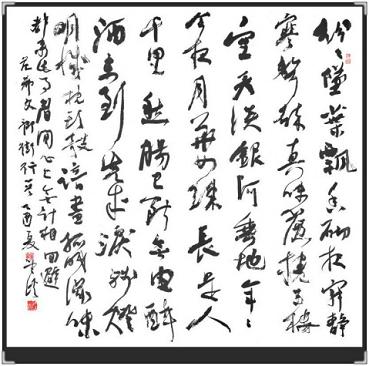 纷々坠葉飘香砌夜寂静
寒声碎真珠簾捲玉楼
空天淡银河垂地年々
今夜月華如练长是人
千里愁肠已断无由醉
酒未到先成泪残燈
明滅枕头敧谙尽孤眠滋味
都来此事眉间心上无计相回避
范希文御街行 乙酉夏